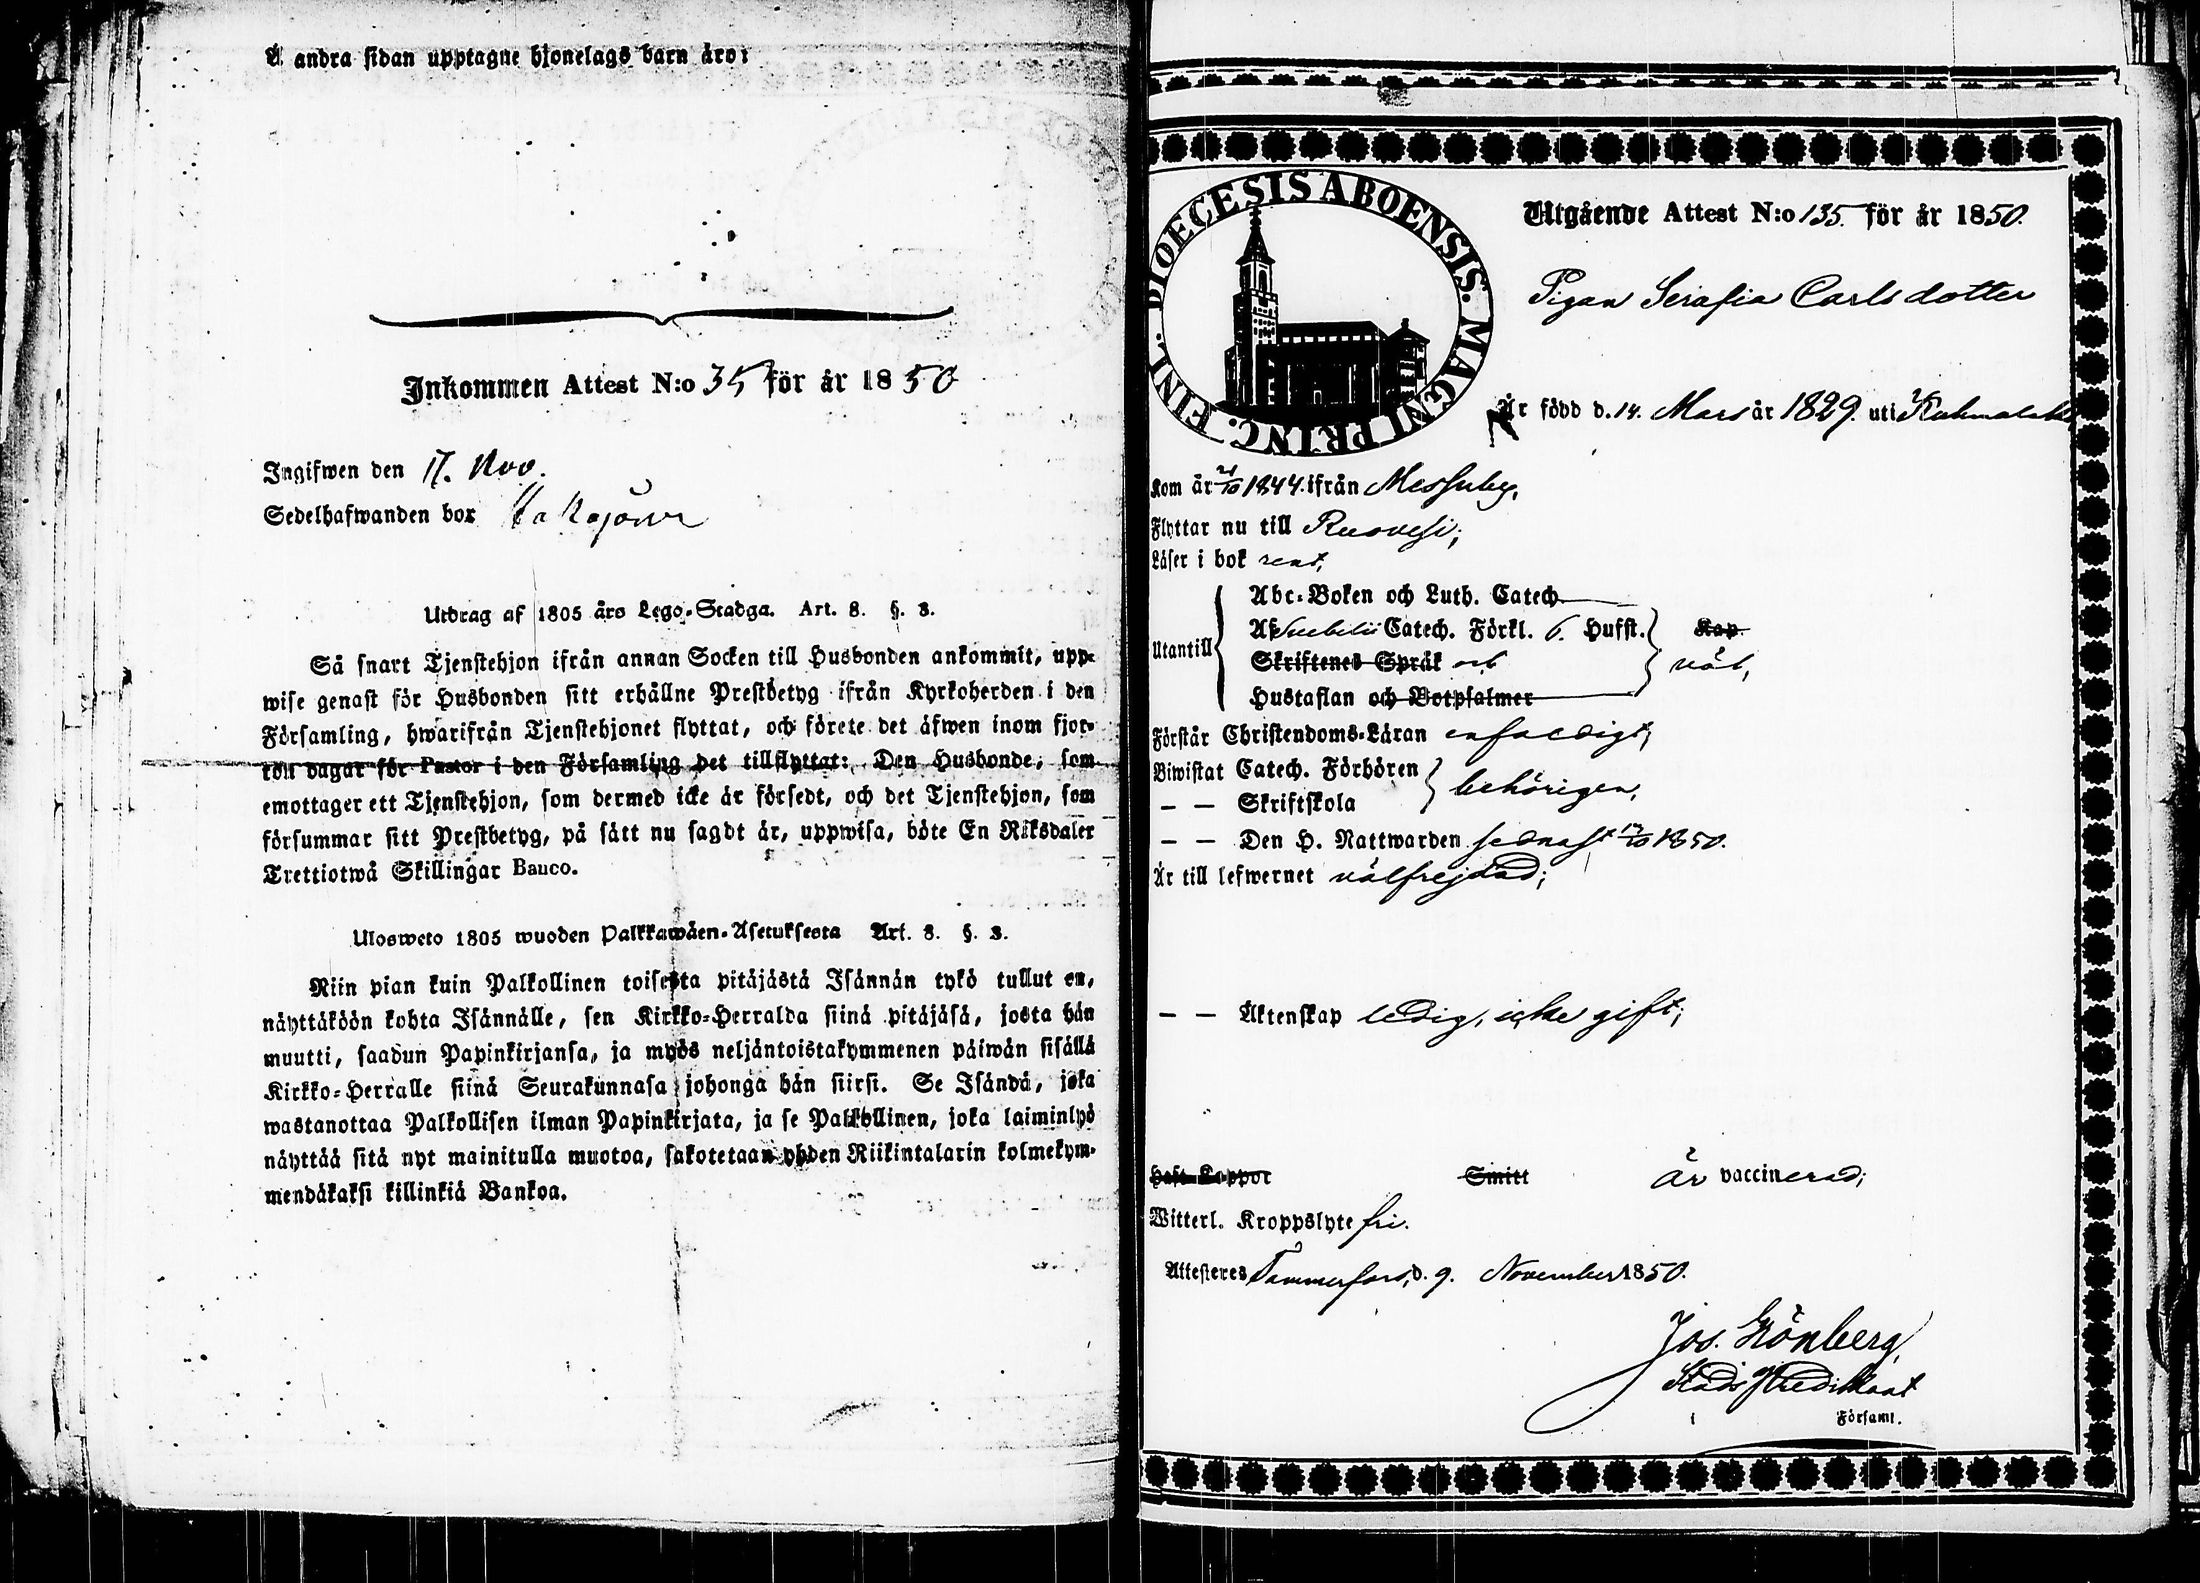 Å andra sidan upptagne hjonelags barn äro:
Inkommen Attest N:o 35 för år 1850
Ingifwen den 17. Nov.
Sedelhafwanden bor
Utdrag af 1805 års Lego-Stadga. Art. 8. §. 3.
Så snart Tjenstehjon ifrån annan Socken till Husbonden ankommit, upp-
wise genast för Husbonden sitt erhållne Prestbetyg ifrån Kyrkoherden i den
Församling, hwarifrån Tjenstehjonet flyttat, och förete det äfwen inom fjor-
ton dagar för Pastor i den Församling det tillflyttat: Den Husbonde, som
emottager ett Tjenstehjon, som dermed icke är försedt, och det Tjenstehjon, som
försummar sitt Prestbetyg, på sätt nu sagdt är, uppwisa, böte En Riksdaler
Trettiotwå Skillingar Banco.
Ulosweto 1805 wuoden Palkkawäen-Asetuksesta Art. 8. §. 3.
Niin pian kuin Palkollinen toisesta pitäjästä Isännän tykö tullut on,
näyttäköön kohta Isännälle, sen Kirkko-Herralda siinä pitäjäsä, josta hän
muutti, saadun Papinkirjansa, ja myös neljäntoistakymmenen päiwän sisällä
Kirkko-Herralle siinä Seurakunnasa johonga hän siirsi. Se Isändä, joka
wastanottaa Palkollisen ilman Papinkirjata, ja se Palkollinen, joka laiminlyö
näyttää sitä nyt mainitulla muotoa, sakotetaan yhden Riikintalarin kolmekym-
mendäkaksi killinkiä Bankoa.
DIOECESIS ABOENSIS. MAGNI PRINC. FINL.
Utgående Attest N:o 135. för år 1850.
Pigan Serafia Carlsdotter
Är född d. 14. Mars år 1829. uti Kuhmalahti
Kom år 21/10 1844. ifrån Messuby,
Flyttar nu till Ruovesi;
Läser i bok rent,
Utantill
Abc-Boken och Luth. Catech.
Af Svebelii Catech. Förkl. 6. Hufst. Kap.
Skriftenes Språk och väl,
Hustaflan och Botpsalmer
Förstår Christendoms-Läran enfaldigt;
Biwistat Catech. Förhören behörigen,
— — Skriftskola
— — Den H. Nattwarden sednast 17/10 1850.
Är till lefwernet välfrejdad;
— — Äktenskap ledig, icke gift;
Haft Koppor Smitt Är vaccinerad;
Witterl. Kroppslyte fri.
Attesteres Tammerfors, d. 9. November 1850.
Jos. Grönberg,
Stads Predikant
i Församl.